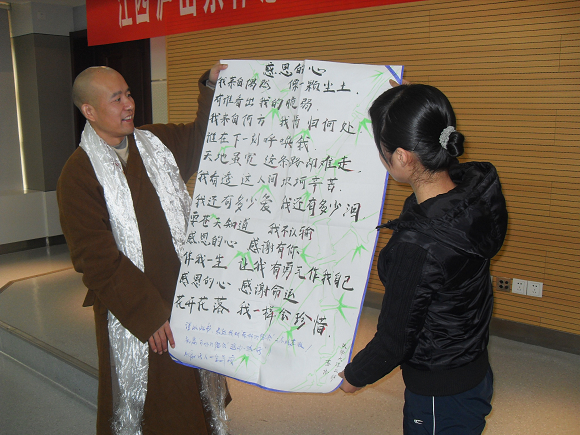 江西庐山东林
感恩的心
我来自偶然 像一颗尘土
有谁看出我的脆弱
我来自何方 我情归何处
谁在下一刻呼唤我
天地虽宽 这条路却难走
我看遍这人间坎坷辛苦
我还有多少爱 我还有多少泪
要苍天知道 我不认输
感恩的心 感谢有你
伴我一生 让我有勇气作我自己
感恩的心 感谢命运
花开花落 我一样会珍惜